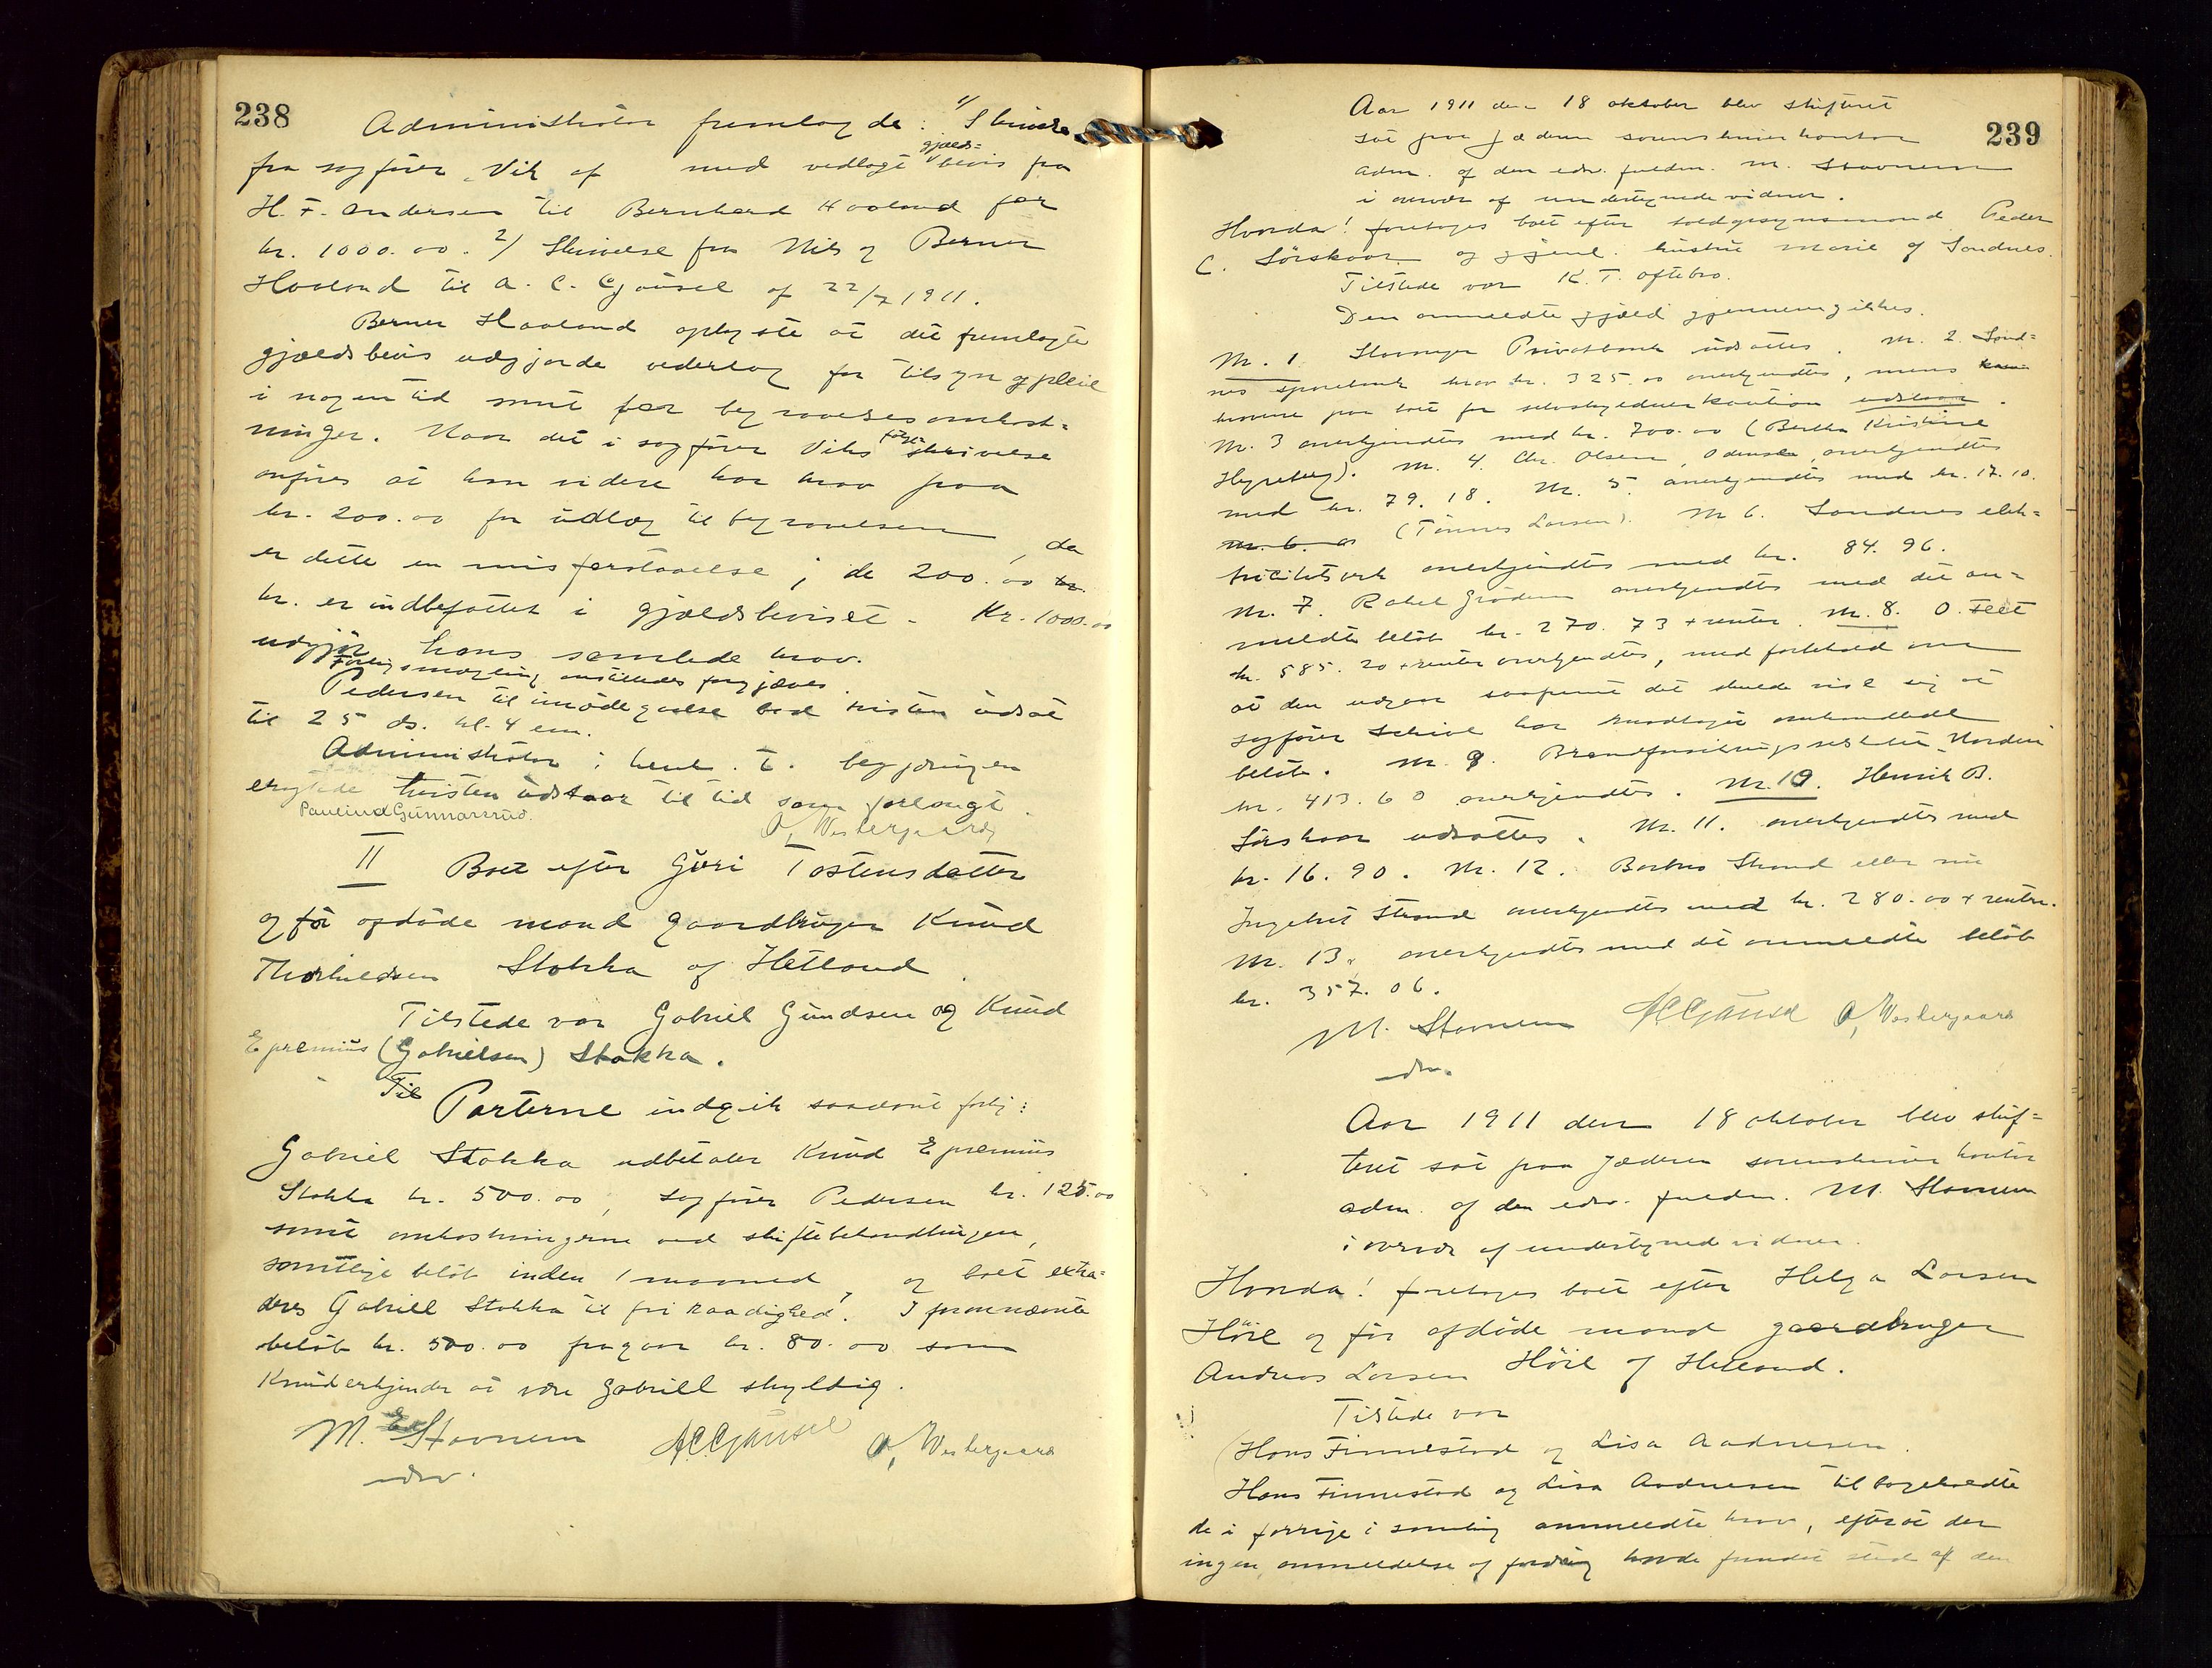 238
Administrator fremlagde: 1/ Skrivelse
fra sagfører Vik af med vedlagt gjælds= bevis fra
H. F. Andersen til Bernhard Haaland for
kr. 1000.00. 2/ Skrivelse fra Nils og Berner
Haaland til A. C. Gjøusel af 22/7 1911.
Berner Haaland oplyste at det fremlagte
gjældsbevis udgjorde vederlag for tilsyn og pleie
i nogen tid samt for begravelsesomkost=
ninger. Naar det i sagfører Viks skrivelse
anføres at han videre har krav paa
kr. 200.00 for udlæg til begravelsen, da
er dette en misforstaaelse; de 200.00 kr.
kr. er indbefattet i gjældsbeviset. Kr. 1000.00
udgjør hans samlede krav.
Forligsmægling anstilledes forgjæves.
Pedersen til imødegaaelse bad tvisten udsat
til 25 ds. kl. 4 em.
Administrator i henh. t. begjæringen
eragtede tvisten udstaar til tid som forlangt.
Paulina Gunnarsrud. O. Westergaard
II Boet efter Guri Tostensdatter
og før afdøde mand gaardbruger Knud
Thorkildsen Stokka af Hetland.
Tilstede var Gabriel Gundsen og Knud
Epremius (Gabrielsen) Stokka.
Til Parterne indgik saadant forlig:
Gabriel Stokka udbetaler Knud Epremius
Stokka kr. 500.00, sagfører Pedersen kr. 125.00
samt omkostningerne ved skiftebehandlingen,
samtlige beløb inden 1 maaned, og boet extra=
deres Gabriel Stokka til fri raadighed. I forannævnte
beløb kr. 500.00 fragaar kr. 80.00 som
Knud erkjender at være Gabriell skyldig.
M. Stavnem ACGjøusel O. Westergaard
edsv.
239
Aar 1911 den 18 oktober blev skifteret
sat paa Jæderen sorenskriverkontor
adm. af den edsv. fuldm. M. Stavnem
i overvær af undertegnede vidner.
Hvorda! foretoges boet efter toldopsynsmand Peder
C. Sørskaar og gjenl. hustru Marie af Sandnes.
Tilstede var K. T. Oftebro.
Den anmeldte gjæld gjennemgikkes.
Nr. 1 Stavanger Privatbank udsattes. Nr. 2 Sand=
nes sparebank krav kr. 325.00 anerkjendtes, mens
kravene paa boet for selvskyldnerkaution udstaar.
Nr. 3 anerkjendtes med kr. 700.00 (Bertha Kristine
). Nr. 4. Chr. Olsen, Odense, anerkjendtes
med kr. 79.18. Nr. 5. anerkjendtes med kr. 17.10.
Nr. 6. (Tønnes Larsen). Nr 6. Sandnes elek=
tricitetsverk anerkjendtes med kr. 84.96.
Nr. 7. Rakel Grødem anerkjendtes med det an=
meldte beløb kr. 270.73 + renter. Nr. 8. O. Feet
kr. 585.20 + renter anerkjendtes, med forbehold om
at den udgaar saafremt det skulde vise sig at
sagfører Schive har modtaget omhandlede
beløb. Nr. 9. Brandforsikringsselskabet Norden
kr. 413.60 anerkjendtes. Nr. 10. Henrik B.
Sørskaar udsattes. Nr. 11. anerkjendtes med
kr. 16.90. Nr. 12. Barbro Strand eller nu
Ingebret Strand anerkjendtes med kr. 280.00 + renter.
Nr. 13. anerkjendtes med det anmeldte beløb
kr. 357.06.
M. Stavnem ACGjøusel O. Westergaard
edsv.
Aar 1911 den 18 oktober blev skif=
teret sat paa Jæderen sorenskriverkontor
adm. af den edsv. fuldm. M. Stavnem
i overvær af undertegnede vidner.
Hvorda! foretoges boet efter Helga Larsen
Høie og før afdøde mand gaardbruger
Andreas Larsen Høie af Hetland.
Tilstede var
Hans Finnestad og Lisa Aadnesen.
Hans Finnestad og Lisa Aadnesen tilbagekaldte
de i forrige samling anmeldte krav, efterat der
ingen anmeldelse af fordring havde fundet sted af den